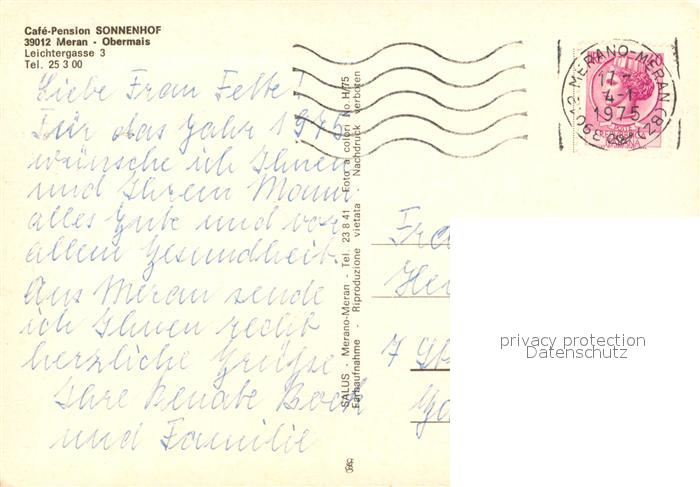 Café-Pension SONNENHOF
39012 Meran - Obermais
Leichtergasse 3
Tel. 25 3 00
Liebe Frau Felte!
Für das Jahr 1975
wünsche ich Ihnen
und Ihrem Mann
alles Gute und vor
allem Gesundheit.
Aus Meran sende
ich Ihnen recht
herzliche Grüße
Ihre Renate Bock
und Familie
SALUS - Merano-Meran - Tel. 23 8 41 Foto a colori No. H/75
Farbaufnahme - Riproduzione vietata - Nachdruck verboten
MERANO-MERAN (BZ)
4-1
1975
7
privacy protection
Datenschutz